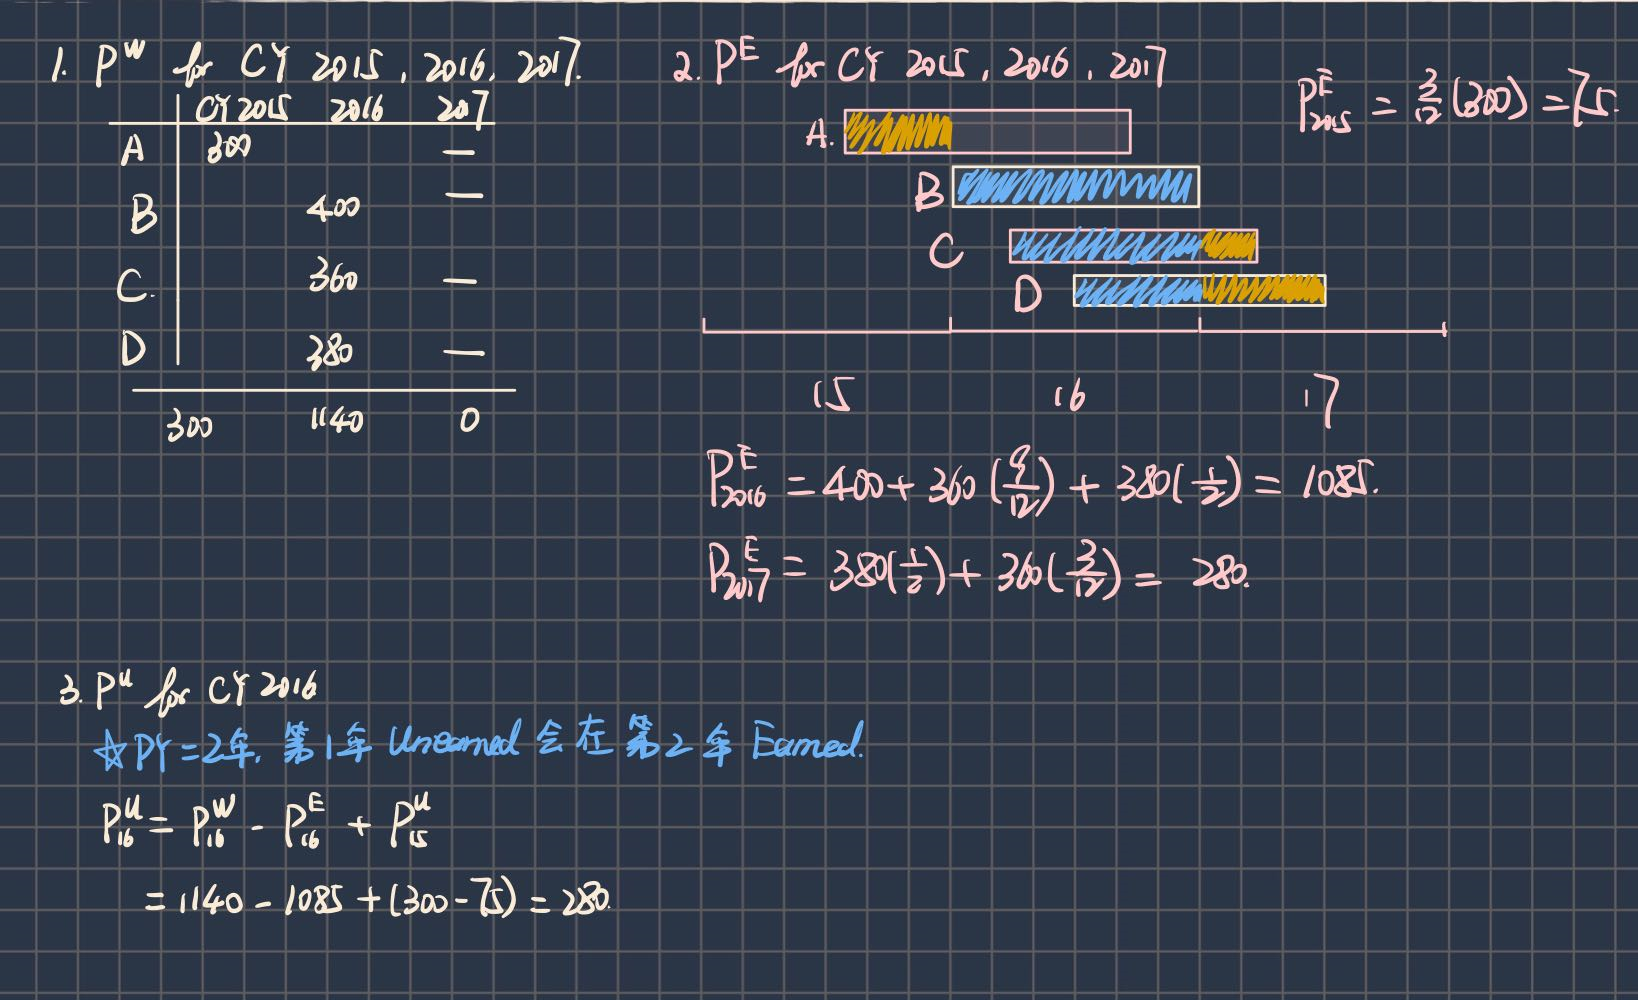 1. P^W for CY 2015, 2016, 2017.
CY 2015 2016 2017
A 300 —
B 400 —
C. 360 —
D 380 —
300 1140 0
2. P^E for CY 2015, 2016, 2017
P^E_2015 = 3/12 (300) = 75.
A.
B
C
D
15 16 17
P^E_2016 = 400 + 360 (9/12) + 380 (1/2) = 1085.
P^E_2017 = 380 (1/2) + 360 (3/12) = 280.
3. P^u for CY 2016
☆ PY = 2年, 第1年 Unearned 会在第2年 Earned.
P^u_16 = P^W_16 - P^E_16 + P^u_15
= 1140 - 1085 + (300 - 75) = 280.